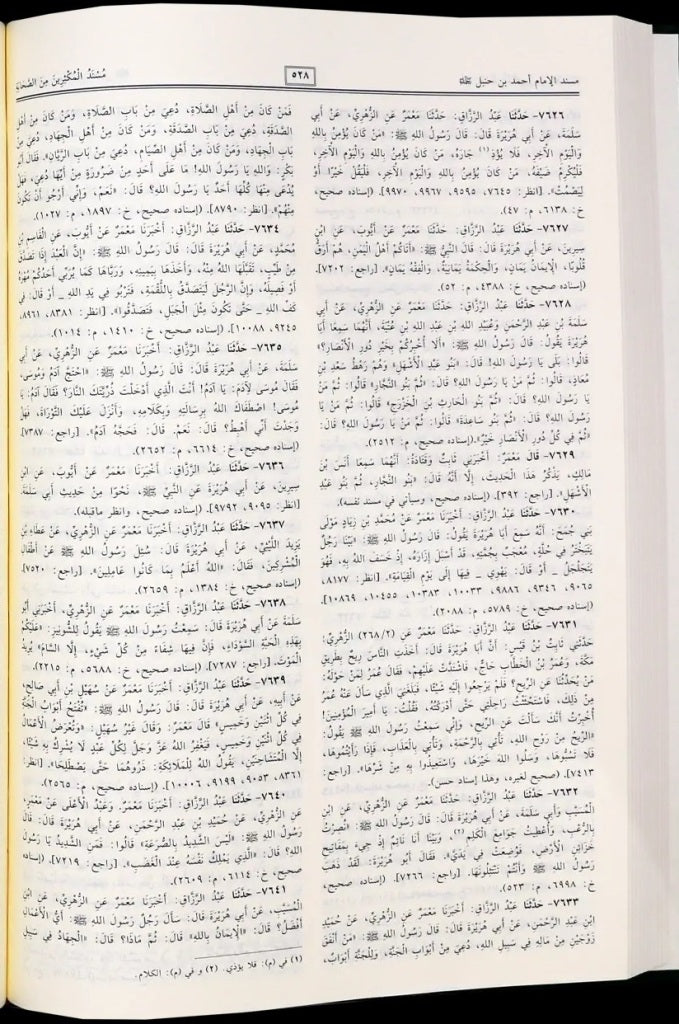 مسند الإمام أحمد بن حنبل
٥٢٨
مُسْنَدُ الْمُكْثِرِينَ مِنَ الصَّحَابَةِ
٧٦٢٦- حَدَّثَنَا عَبْدُ الرَّزَّاقِ: حَدَّثَنَا مَعْمَرٌ عَنِ الزُّهْرِيِّ، عَنْ أَبِي
سَلَمَةَ، عَنْ أَبِي هُرَيْرَةَ قَالَ: قَالَ رَسُولُ اللهِ ﷺ: «مَنْ كَانَ يُؤْمِنُ بِاللهِ
وَالْيَوْمِ الْآخِرِ، فَلَا يُؤْذِ(١) جَارَهُ، مَنْ كَانَ يُؤْمِنُ بِاللهِ وَالْيَوْمِ الْآخِرِ،
فَلْيُكْرِمْ ضَيْفَهُ، مَنْ كَانَ يُؤْمِنُ بِاللهِ وَالْيَوْمِ الْآخِرِ، فَلْيَقُلْ خَيْرًا أَوْ
لِيَصْمُتْ». [انظر: ٧٦٤٥، ٩٥٩٥، ٩٩٦٧، ٩٩٧٠]. (إسناده صحيح،
خ: ٦١٣٨، م: ٤٧).
٧٦٢٧- حَدَّثَنَا عَبْدُ الرَّزَّاقِ: حَدَّثَنَا مَعْمَرٌ عَنْ أَيُّوبَ، عَنِ ابْنِ
سِيرِينَ، عَنْ أَبِي هُرَيْرَةَ قَالَ: قَالَ النَّبِيُّ ﷺ: «أَتَاكُمْ أَهْلُ الْيَمَنِ، هُمْ أَرَقُّ
قُلُوبًا، الْإِيمَانُ يَمَانٍ، وَالْحِكْمَةُ يَمَانِيَةٌ، وَالْفِقْهُ يَمَانٍ». [راجع: ٧٢٠٢].
(إسناده صحيح، خ: ٤٣٨٨، م: ٥٢).
٧٦٢٨- حَدَّثَنَا عَبْدُ الرَّزَّاقِ: حَدَّثَنَا مَعْمَرٌ عَنِ الزُّهْرِيِّ، عَنْ أَبِي
سَلَمَةَ بْنِ عَبْدِ الرَّحْمَنِ وَعُبَيْدِ اللهِ بْنِ عَبْدِ اللهِ بْنِ عُتْبَةَ، أَنَّهُمَا سَمِعَا أَبَا
هُرَيْرَةَ يَقُولُ: قَالَ رَسُولُ اللهِ ﷺ: «أَلَا أُخْبِرُكُمْ بِخَيْرِ دُورِ الْأَنْصَارِ؟»
قَالُوا: بَلَى يَا رَسُولَ اللهِ! قَالَ: «بَنُو عَبْدِ الْأَشْهَلِ» وَهُمْ رَهْطُ سَعْدِ بْنِ
مُعَاذٍ، قَالُوا: ثُمَّ مَنْ يَا رَسُولَ اللهِ؟ قَالَ: «ثُمَّ بَنُو النَّجَّارِ» قَالُوا: ثُمَّ مَنْ
يَا رَسُولَ اللهِ؟ قَالَ: «ثُمَّ بَنُو الْحَارِثِ بْنِ الْخَزْرَجِ» قَالُوا: ثُمَّ مَنْ يَا
رَسُولَ اللهِ؟ قَالَ: «ثُمَّ بَنُو سَاعِدَةَ» قَالُوا: ثُمَّ مَنْ يَا رَسُولَ اللهِ؟ قَالَ:
«ثُمَّ فِي كُلِّ دُورِ الْأَنْصَارِ خَيْرٌ». (إسناده صحيح، م: ٢٥١٢).
٧٦٢٩- قَالَ مَعْمَرٌ: أَخْبَرَنِي ثَابِتٌ وَقَتَادَةُ: أَنَّهُمَا سَمِعَا أَنَسَ بْنَ
مَالِكٍ، يَذْكُرُ هَذَا الْحَدِيثَ، إِلَّا أَنَّهُ قَالَ: «بَنُو النَّجَّارِ، ثُمَّ بَنُو عَبْدِ
الْأَشْهَلِ». [راجع: ٣٩٢]. (إسناده صحيح، وسيأتي في مسند نفسه).
٧٦٣٠- حَدَّثَنَا عَبْدُ الرَّزَّاقِ: حَدَّثَنَا مَعْمَرٌ عَنْ مُحَمَّدِ بْنِ زِيَادٍ مَوْلَى
بَنِي جُمَحَ: أَنَّهُ سَمِعَ أَبَا هُرَيْرَةَ يَقُولُ: قَالَ رَسُولُ اللهِ ﷺ: «بَيْنَا رَجُلٌ
يَتَبَخْتَرُ فِي حُلَّةٍ، مُعْجَبٌ بِجُمَّتِهِ، قَدْ أَسْبَلَ إِزَارَهُ، إِذْ خَسَفَ اللهُ بِهِ، فَهُوَ
يَتَجَلْجَلُ _ أَوْ قَالَ: يَهْوِي _ فِيهَا إِلَى يَوْمِ الْقِيَامَةِ». [انظر: ٨١٧٧،
٩٠٦٥، ٩٣٤٦، ٩٨٨٦، ١٠٠٣٣، ١٠٣٨٣، ١٠٤٥٥، ١٠٨٦٩].
(إسناده صحيح، خ: ٥٧٨٩، م: ٢٠٨٨).
٧٦٣١- حَدَّثَنَا عَبْدُ الرَّزَّاقِ: حَدَّثَنَا مَعْمَرٌ عَنِ (٢٦٨/٢) الزُّهْرِيِّ:
حَدَّثَنِي ثَابِتُ بْنُ قَيْسٍ: أَنَّ أَبَا هُرَيْرَةَ قَالَ: أَخَذَتِ النَّاسَ رِيحٌ بِطَرِيقِ
مَكَّةَ، وَعُمَرُ بْنُ الْخَطَّابِ حَاجٌّ، فَاشْتَدَّتْ عَلَيْهِمْ، فَقَالَ عُمَرُ لِمَنْ حَوْلَهُ:
مَنْ يُحَدِّثُنَا عَنِ الرِّيحِ؟ فَلَمْ يَرْجِعُوا إِلَيْهِ شَيْئًا، فَبَلَغَنِي الَّذِي سَأَلَ عَنْهُ عُمَرُ
مِنْ ذَلِكَ، فَاسْتَحْثَثْتُ رَاحِلَتِي حَتَّى أَدْرَكْتُهُ، فَقُلْتُ: يَا أَمِيرَ الْمُؤْمِنِينَ!
أُخْبِرْتُ أَنَّكَ سَأَلْتَ عَنِ الرِّيحِ، وَإِنِّي سَمِعْتُ رَسُولَ اللهِ ﷺ يَقُولُ:
«الرِّيحُ مِنْ رَوْحِ اللهِ، تَأْتِي بِالرَّحْمَةِ، وَتَأْتِي بِالْعَذَابِ، فَإِذَا رَأَيْتُمُوهَا،
فَلَا تَسُبُّوهَا، وَسَلُوا اللهَ خَيْرَهَا، وَاسْتَعِيذُوا بِهِ مِنْ شَرِّهَا». [راجع:
٧٤١٣]. (صحيح لغيره، وهذا إسناد حسن).
٧٦٣٢- حَدَّثَنَا عَبْدُ الرَّزَّاقِ: أَخْبَرَنَا مَعْمَرٌ عَنِ الزُّهْرِيِّ، عَنِ ابْنِ
الْمُسَيَّبِ وَأَبِي سَلَمَةَ، عَنْ أَبِي هُرَيْرَةَ قَالَ: قَالَ رَسُولُ اللهِ ﷺ: «نُصِرْتُ
بِالرُّعْبِ، وَأُعْطِيتُ جَوَامِعَ الْكَلِمِ(٢)، وَبَيْنَا أَنَا نَائِمٌ إِذْ جِيءَ بِمَفَاتِيحِ
خَزَائِنِ الْأَرْضِ، فَوُضِعَتْ فِي يَدَيَّ». فَقَالَ أَبُو هُرَيْرَةَ: لَقَدْ ذَهَبَ
رَسُولُ اللهِ ﷺ وَأَنْتُمْ تَنْتَثِلُونَهَا. [راجع: ٧٢٦٦]. (إسناده صحيح،
خ: ٦٩٩٨، م: ٥٢٣).
٧٦٣٣- حَدَّثَنَا عَبْدُ الرَّزَّاقِ: أَخْبَرَنَا مَعْمَرٌ عَنِ الزُّهْرِيِّ، عَنْ حُمَيْدِ
ابْنِ عَبْدِ الرَّحْمَنِ، عَنْ أَبِي هُرَيْرَةَ قَالَ: قَالَ رَسُولُ اللهِ ﷺ: «مَنْ أَنْفَقَ
زَوْجَيْنِ مِنْ مَالِهِ فِي سَبِيلِ اللهِ، دُعِيَ مِنْ أَبْوَابِ الْجَنَّةِ، وَلِلْجَنَّةِ أَبْوَابٌ،
فَمَنْ كَانَ مِنْ أَهْلِ الصَّلَاةِ، دُعِيَ مِنْ بَابِ الصَّلَاةِ، وَمَنْ كَانَ مِنْ أَهْلِ
الصَّدَقَةِ، دُعِيَ مِنْ بَابِ الصَّدَقَةِ، وَمَنْ كَانَ مِنْ أَهْلِ الْجِهَادِ، دُعِيَ مِنْ
بَابِ الْجِهَادِ، وَمَنْ كَانَ مِنْ أَهْلِ الصِّيَامِ، دُعِيَ مِنْ بَابِ الرَّيَّانِ». فَقَالَ أَبُو
بَكْرٍ: وَاللهِ يَا رَسُولَ اللهِ! مَا عَلَى أَحَدٍ مِنْ ضَرُورَةٍ مِنْ أَيِّهَا دُعِيَ، فَهَلْ
يُدْعَى مِنْهَا كُلِّهَا أَحَدٌ يَا رَسُولَ اللهِ؟ قَالَ: «نَعَمْ، وَإِنِّي أَرْجُو أَنْ تَكُونَ
مِنْهُمْ». [انظر: ٨٧٩٠]. (إسناده صحيح، خ: ١٨٩٧، م: ١٠٢٧).
٧٦٣٤- حَدَّثَنَا عَبْدُ الرَّزَّاقِ: أَخْبَرَنَا مَعْمَرٌ عَنْ أَيُّوبَ، عَنِ الْقَاسِمِ بْنِ
مُحَمَّدٍ، عَنْ أَبِي هُرَيْرَةَ قَالَ: قَالَ رَسُولُ اللهِ ﷺ: «إِنَّ الْعَبْدَ إِذَا تَصَدَّقَ
مِنْ طَيِّبٍ، تَقَبَّلَهَا اللهُ مِنْهُ، وَأَخَذَهَا بِيَمِينِهِ، وَرَبَّاهَا كَمَا يُرَبِّي أَحَدُكُمْ مُهْرَهُ
أَوْ فَصِيلَهُ، وَإِنَّ الرَّجُلَ لَيَتَصَدَّقُ بِاللُّقْمَةِ، فَتَرْبُو فِي يَدِ اللهِ _ أَوْ قَالَ: فِي
كَفِّ اللهِ _ حَتَّى تَكُونَ مِثْلَ الْجَبَلِ، فَتَصَدَّقُوا». [انظر: ٨٣٨١، ٨٩٦١،
٩٢٤٥، ١٠٠٨٨]. (إسناده صحيح، خ: ١٤١٠، م: ١٠١٤).
٧٦٣٥- حَدَّثَنَا عَبْدُ الرَّزَّاقِ: أَخْبَرَنَا مَعْمَرٌ عَنِ الزُّهْرِيِّ، عَنْ أَبِي
سَلَمَةَ، عَنْ أَبِي هُرَيْرَةَ قَالَ: قَالَ رَسُولُ اللهِ ﷺ: «احْتَجَّ آدَمُ وَمُوسَى،
فَقَالَ مُوسَى لِآدَمَ: يَا آدَمُ! أَنْتَ الَّذِي أَدْخَلْتَ ذُرِّيَّتَكَ النَّارَ؟ فَقَالَ آدَمُ: يَا
مُوسَى! اصْطَفَاكَ اللهُ بِرِسَالَتِهِ وَبِكَلَامِهِ، وَأَنْزَلَ عَلَيْكَ التَّوْرَاةَ، فَهَلْ
وَجَدْتَ أَنِّي أَهْبِطُ؟ قَالَ: نَعَمْ. قَالَ: فَحَجَّهُ آدَمُ». [راجع: ٧٣٨٧].
(إسناده صحيح، خ: ٦٦١٤، م: ٢٦٥٢).
٧٦٣٦- حَدَّثَنَا عَبْدُ الرَّزَّاقِ: أَخْبَرَنَا مَعْمَرٌ عَنْ أَيُّوبَ، عَنِ ابْنِ
سِيرِينَ، عَنْ أَبِي هُرَيْرَةَ عَنِ النَّبِيِّ ﷺ، نَحْوًا مِنْ حَدِيثِ أَبِي سَلَمَةَ.
[انظر: ٩٠٩٥، ٩٧٩٢]. (إسناده صحيح، وانظر ماقبله).
٧٦٣٧- حَدَّثَنَا عَبْدُ الرَّزَّاقِ: أَخْبَرَنَا مَعْمَرٌ عَنِ الزُّهْرِيِّ، عَنْ عَطَاءِ بْنِ
يَزِيدَ اللَّيْثِيِّ، عَنْ أَبِي هُرَيْرَةَ قَالَ: سُئِلَ رَسُولُ اللهِ ﷺ عَنْ أَطْفَالِ
الْمُشْرِكِينَ، فَقَالَ: «اللهُ أَعْلَمُ بِمَا كَانُوا عَامِلِينَ». [راجع: ٧٥٢٠].
(إسناده صحيح، خ: ١٣٨٤، م: ٢٦٥٩).
٧٦٣٨- حَدَّثَنَا عَبْدُ الرَّزَّاقِ: أَخْبَرَنَا مَعْمَرٌ عَنِ الزُّهْرِيِّ، أَخْبَرَنِي أَبُو
سَلَمَةَ عَنْ أَبِي هُرَيْرَةَ قَالَ: سَمِعْتُ رَسُولَ اللهِ ﷺ يَقُولُ لِلشُّونِيزِ: «عَلَيْكُمْ
بِهَذِهِ الْحَبَّةِ السَّوْدَاءِ، فَإِنَّ فِيهَا شِفَاءً مِنْ كُلِّ شَيْءٍ، إِلَّا السَّامَ» يُرِيدُ
الْمَوْتَ. [راجع: ٧٢٨٧]. (إسناده صحيح، خ: ٥٦٨٨، م: ٢٢١٥).
٧٦٣٩- حَدَّثَنَا عَبْدُ الرَّزَّاقِ: أَخْبَرَنَا مَعْمَرٌ عَنْ سُهَيْلِ بْنِ أَبِي صَالِحٍ،
عَنْ أَبِيهِ، عَنْ أَبِي هُرَيْرَةَ قَالَ: قَالَ رَسُولُ اللهِ ﷺ: «تُفْتَحُ أَبْوَابُ الْجَنَّةِ
فِي كُلِّ اثْنَيْنِ وَخَمِيسٍ» قَالَ مَعْمَرٌ: وَقَالَ غَيْرُ سُهَيْلٍ: «وَتُعْرَضُ الْأَعْمَالُ
فِي كُلِّ اثْنَيْنِ وَخَمِيسٍ، فَيَغْفِرُ اللهُ عَزَّ وَجَلَّ لِكُلِّ عَبْدٍ لَا يُشْرِكُ بِهِ شَيْئًا،
إِلَّا الْمُتَشَاحِنَيْنِ، يَقُولُ اللهُ لِلْمَلَائِكَةِ: ذَرُوهُمَا حَتَّى يَصْطَلِحَا». [انظر:
٨٣٦١، ٩٠٥٣، ٩١٩٩، ١٠٠٠٦]. (إسناده صحيح، م: ٢٥٦٥).
٧٦٤٠- حَدَّثَنَا عَبْدُ الرَّزَّاقِ: أَخْبَرَنَا مَعْمَرٌ. وَعَبْدُ الْأَعْلَى عَنْ مَعْمَرٍ،
عَنِ الزُّهْرِيِّ، عَنْ حُمَيْدِ بْنِ عَبْدِ الرَّحْمَنِ، عَنْ أَبِي هُرَيْرَةَ قَالَ: قَالَ
رَسُولُ اللهِ ﷺ: «لَيْسَ الشَّدِيدُ بِالصُّرَعَةِ» قَالُوا: فَمَنِ الشَّدِيدُ يَا رَسُولَ
اللهِ؟ قَالَ: «الَّذِي يَمْلِكُ نَفْسَهُ عِنْدَ الْغَضَبِ». [راجع: ٧٢١٩]. (إسناده
صحيح، خ: ٦١١٤، م: ٢٦٠٩).
٧٦٤١- حَدَّثَنَا عَبْدُ الرَّزَّاقِ: أَخْبَرَنَا مَعْمَرٌ عَنِ الزُّهْرِيِّ، عَنِ ابْنِ
الْمُسَيَّبِ، عَنْ أَبِي هُرَيْرَةَ قَالَ: سَأَلَ رَجُلٌ رَسُولَ اللهِ ﷺ: أَيُّ الْأَعْمَالِ
أَفْضَلُ؟ قَالَ: «الْإِيمَانُ بِاللهِ» قَالَ: ثُمَّ مَاذَا؟ قَالَ: «الْجِهَادُ فِي سَبِيلِ
(١) في (م): فلا يؤذي. (٢) و في (م): الكلام.